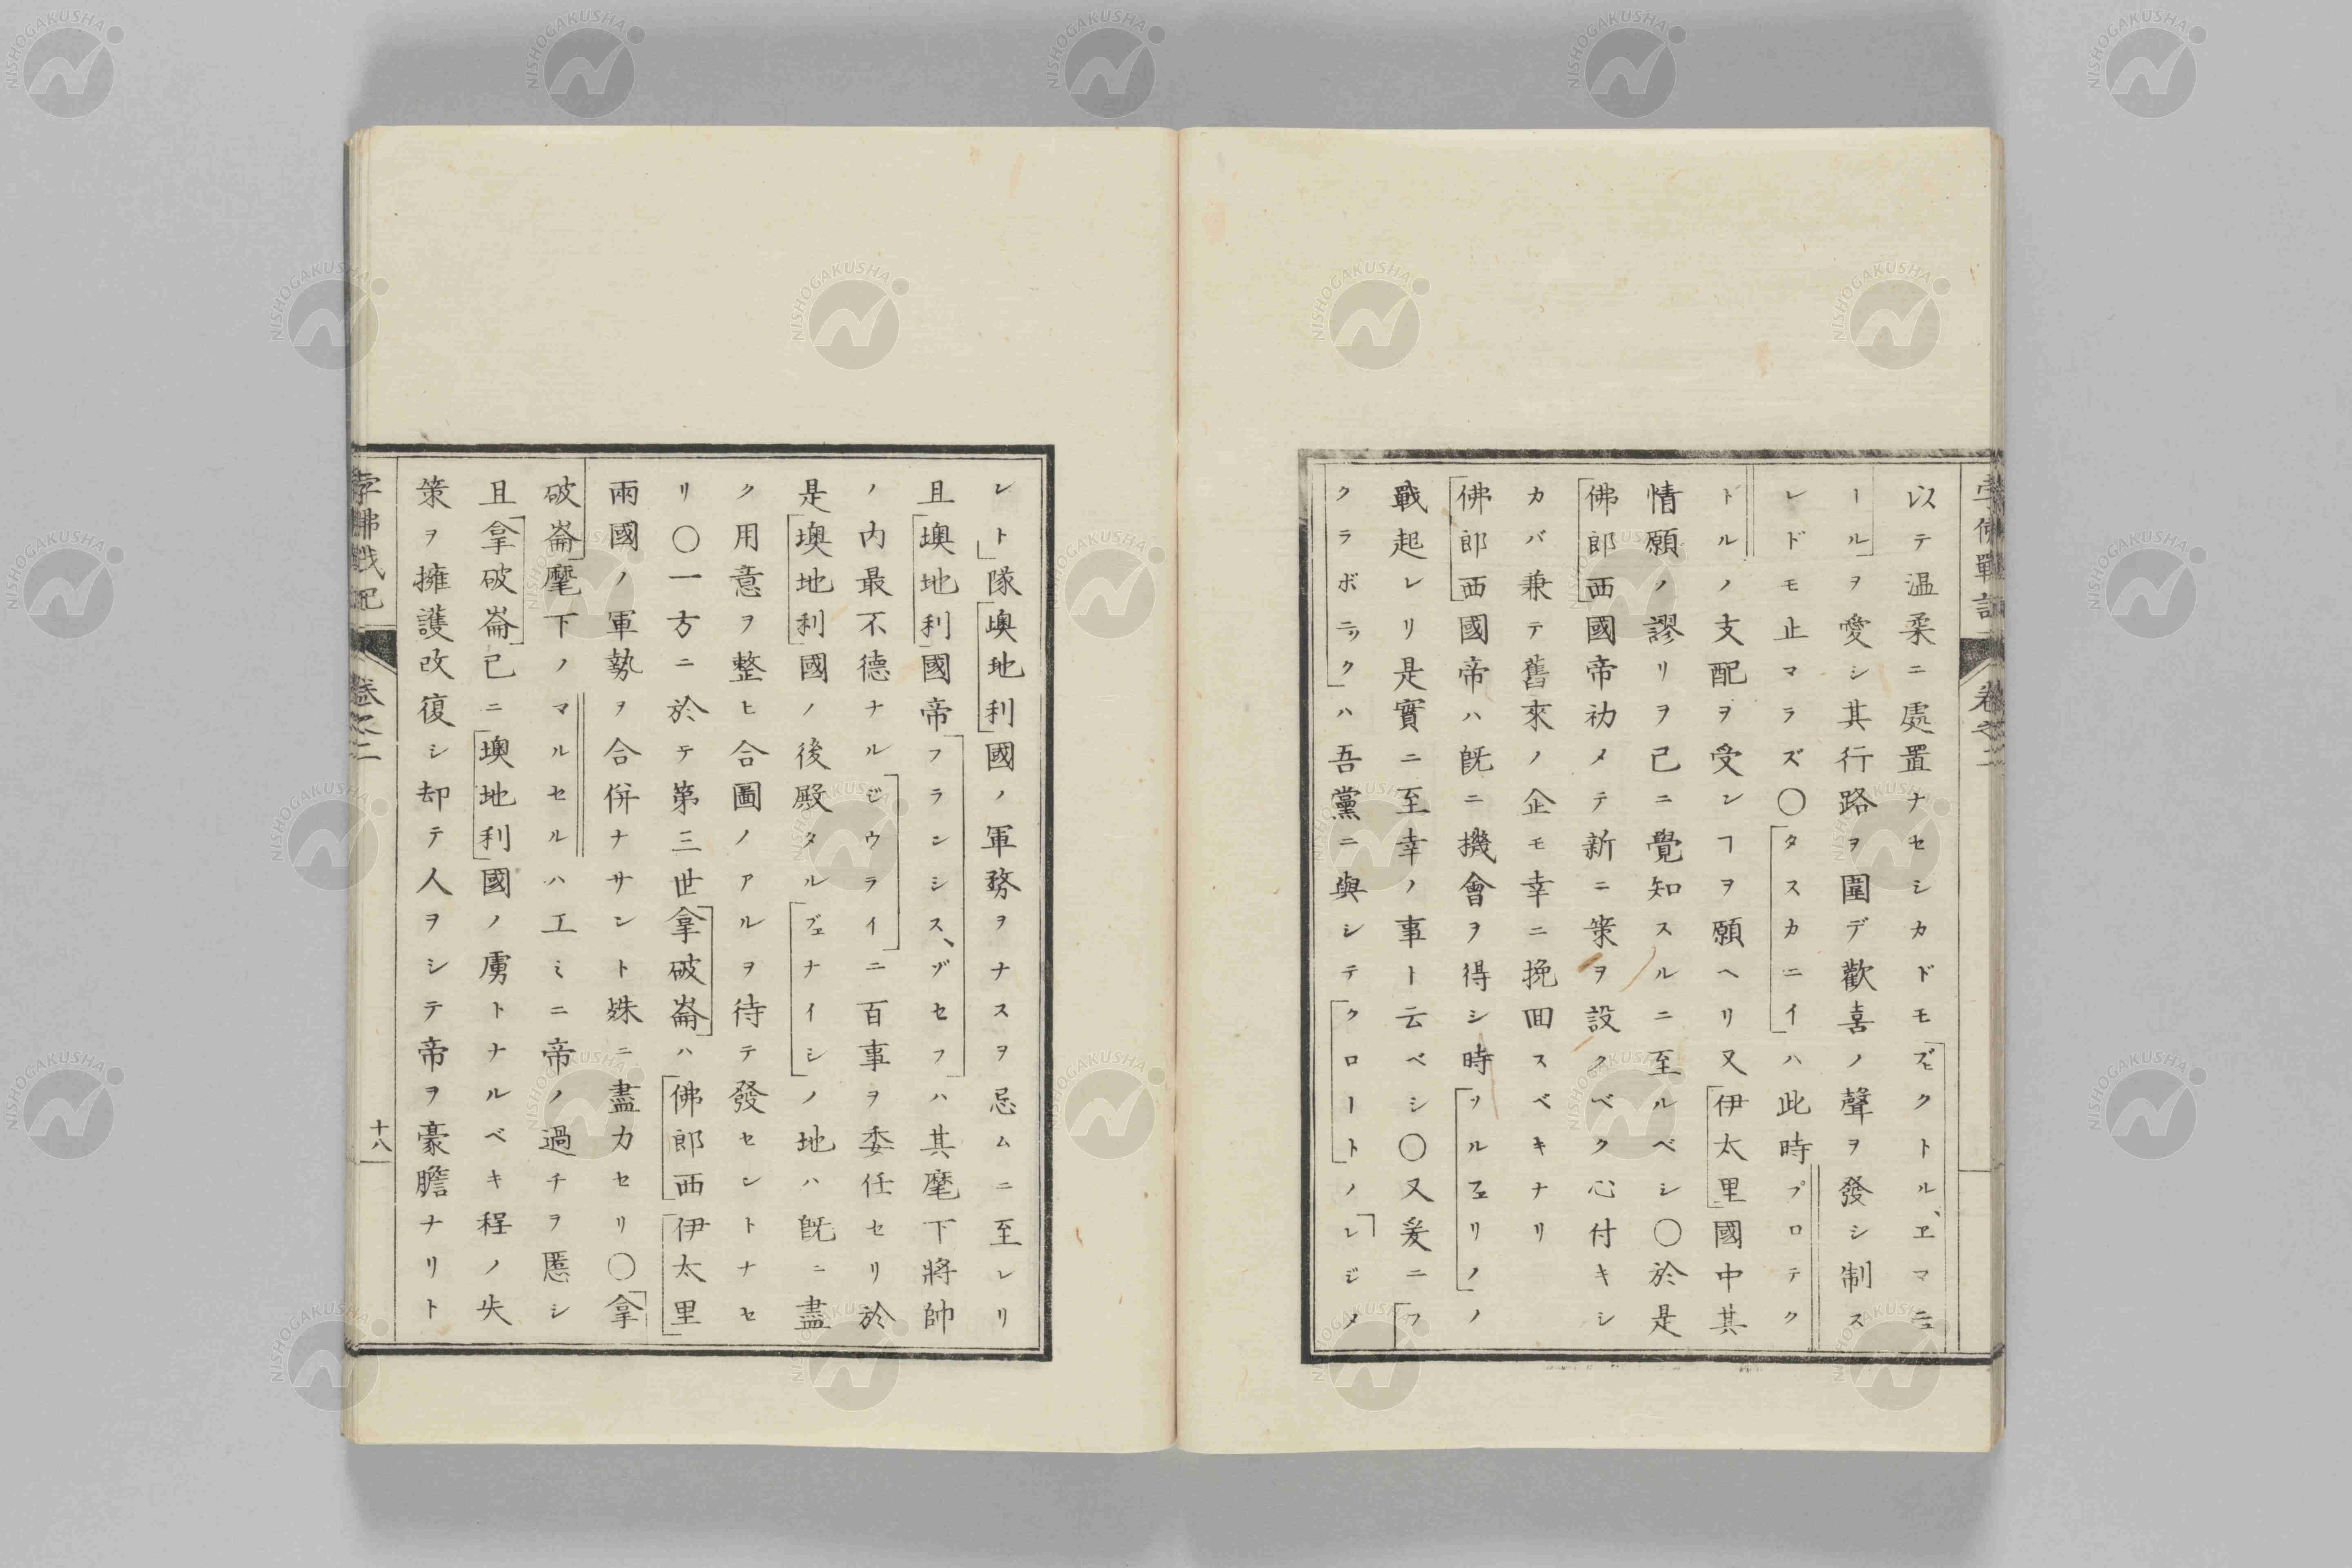 以テ温柔ニ處置ナセシカドモビクトル、ヱマニュ
ールヲ愛シ其行路ヲ圍デ歡喜ノ聲ヲ發シ制ス
レドモ止マラズ〇タスカニイハ此時プロテク
ドルノ支配ヲ受ンヿヲ願ヘリ又伊太里國中其
情願ノ謬リヲ已ニ覺知スルニ至ルベシ〇於是
佛郎西國帝初メテ新ニ策ヲ設クベク心付キシ
カバ兼テ舊來ノ企モ幸ニ挽回スベキナリ
佛郎西國帝ハ既ニ機會ヲ得シ時ヲルフェリノノ
戰起レリ是實ニ至幸ノ事ト云ベシ〇又爰ニフ
クラボニックハ吾黨ニ與シテクロートノレジメ
レト隊墺地利國ノ軍務ヲナスヲ忌ムニ至レリ
且墺地利國帝フランシス、ヅセフハ其麾下將帥
ノ内最不德ナルジウライニ百事ヲ委任セリ於
是墺地利國ノ後殿タルヴェナイシノ地ハ既ニ盡
ク用意ヲ整ヒ合圖ノアルヲ待テ發セントナセ
リ〇一方ニ於テ第三世拿破崙ハ佛郎西伊太里
兩國ノ軍勢ヲ合併ナサント殊ニ盡力セリ〇拿
破崙麾下ノマルセルハ工ミニ帝ノ過チヲ慝シ
且拿破崙已ニ墺地利國ノ虜トナルベキ程ノ失
策ヲ擁護改復シ却テ人ヲシテ帝ヲ豪膽ナリト
孛佛戰記 卷之二 十八
NISHOGAKUSHA